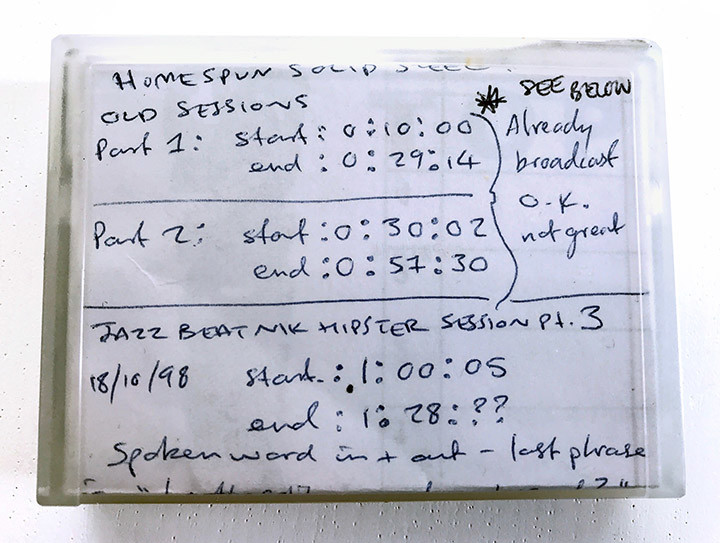 HOMESPUN SOLID STEEL.
OLD SESSIONS
* SEE BELOW
Part 1: start: 0:10:00
end: 0:29:14
Already
broadcast
O.K.
not great
Part 2: start: 0:30:02
end: 0:57:30
JAZZ BEATNIK HIPSTER SESSION Pt. 3
18/10/98 start.: 1:00:05
end: 1:28:??
Spoken word in + out - last phrase